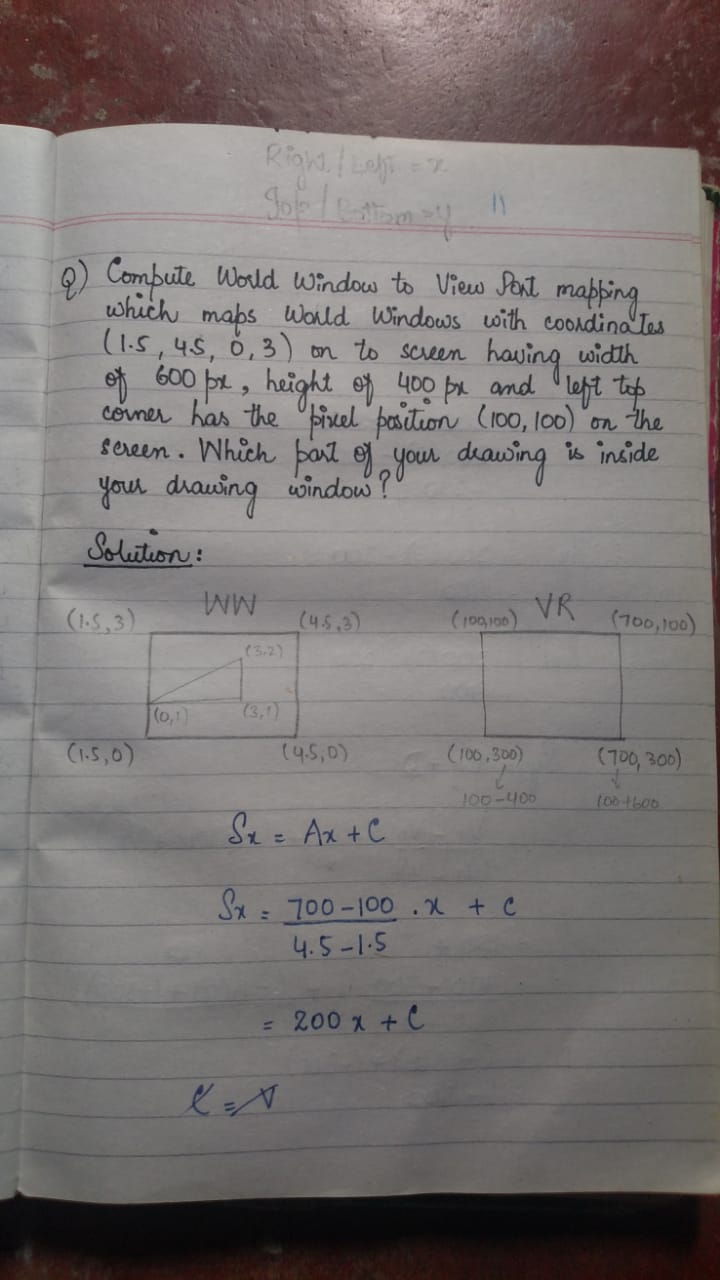 Right / Left = x
Top / Bottom = y
11
Q) Compute World Window to View Port mapping
which maps World Windows with coordinates
(1.5, 4.5, 0, 3) on to screen having width
of 600 px, height of 400 px and left top
corner has the pixel position (100, 100) on the
screen. Which part of your drawing is inside
your drawing window?
Solution:
WW VR
(1.5, 3) (4.5, 3) (100,100) (700,100)
(3,2)
(0,1) (3,1)
(1.5, 0) (4.5, 0) (100, 300) (700, 300)
100-400 100+600
Sx = Ax + C
Sx = 700-100 . x + c
4.5-1.5
= 200 x + C